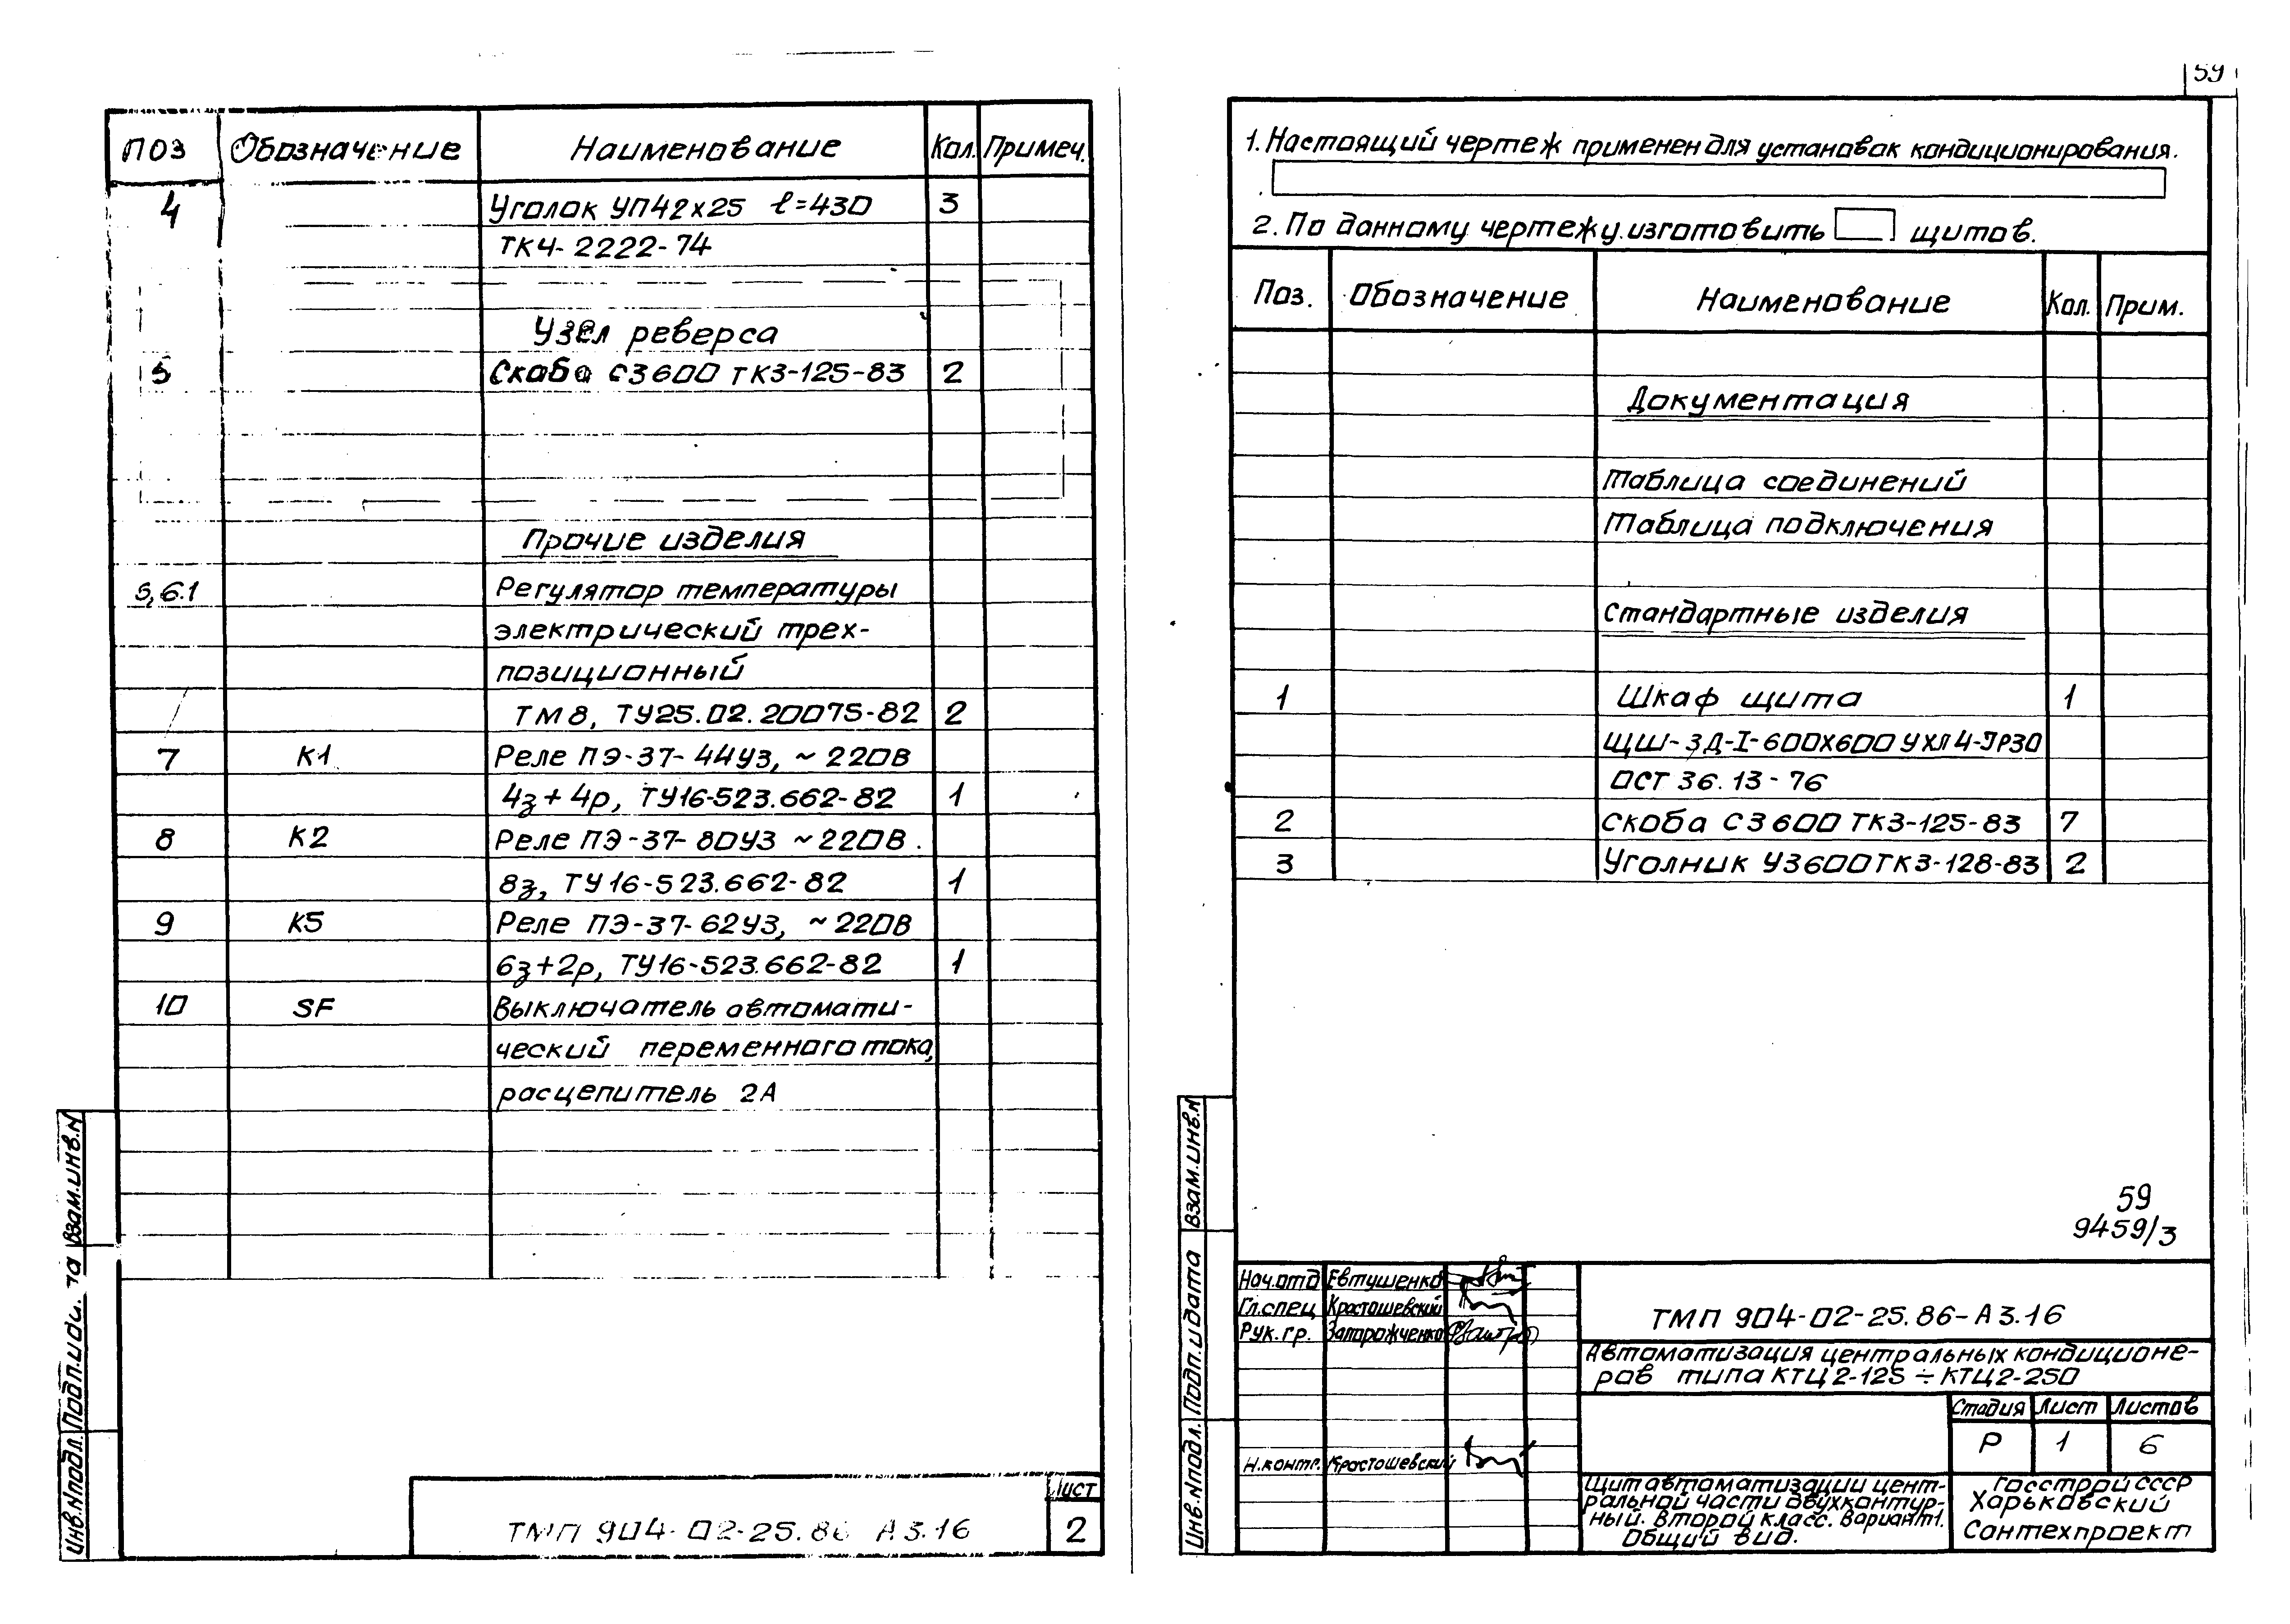 59
ПОЗ Обозначение Наименование Кол. Примеч.
4 Уголок УП42х25 ℓ=430 3
ТКЧ-2222-74
Узел реверса
5 Скоба С3600 ТК3-125-83 2
Прочие изделия
5,6.1 Регулятор температуры
электрический трех-
позиционный
ТМ8, ТУ25.02.20075-82 2
7 К1 Реле ПЭ-37-44У3, ~220В
4з+4р, ТУ16-523.662-82 1
8 К2 Реле ПЭ-37-80У3 ~220В.
8з, ТУ16-523.662-82 1
9 К5 Реле ПЭ-37-62У3, ~220В
6з+2р, ТУ16-523.662-82 1
10 SF Выключатель автомати-
ческий переменного тока,
расцепитель 2А
Инв.Nподл. Подп.и да та Взам.инв.N
ТМП 904-02-25.86 А3.16
Лист
2
1. Настоящий чертеж применен для установок кондиционирования.
2. По данному чертежу изготовить щитов.
Поз. Обозначение Наименование Кол. Прим.
Документация
Таблица соединений
Таблица подключения
Стандартные изделия
1 Шкаф щита 1
ЩШ-3Д-I-600х600 УХЛ4-IP30
ОСТ 36.13-76
2 Скоба С3600 ТК3-125-83 7
3 Уголник У3600ТК3-128-83 2
59
9459/3
Инв.Nподл. Подп.и дата Взам.инв.N
Нач.отд Евтушенко
Гл.спец Красташевский
Рук.гр. Запорожченко
Н.контр. Красташевский
ТМП 904-02-25.86-А3.16
Автоматизация центральных кондиционе-
ров типа КТЦ2-125÷КТЦ2-250
Стадия Лист Листов
Р 1 6
Щит автоматизации цент-
ральной части двухконтур-
ный. Второй класс. Вариант1.
Общий вид.
Госстрой СССР
Харьковский
Сантехпроект